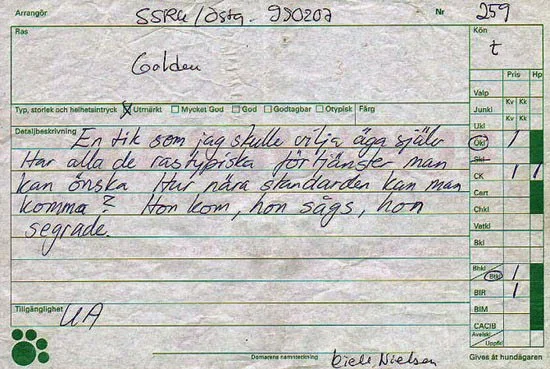 Arrangör SSRK/Östg. 990207 Nr 259
Ras Kön
Golden t
Pris Hp
Valp
Typ, storlek och helhetsintryck Utmärkt Mycket God God Godtagbar Otypisk Färg Junkl Kv Kk Kv Kk
Detaljbeskrivning Ukl
En tik som jag skulle vilja äga själv Ökl 1
Har alla de rastypiska förtjänster man Skl
kan önska Hur nära standarden kan man CK 1 1
komma? Hon kom, hon sågs, hon Cert
segrade. Chkl
Vetkl
Bkl
Bhkl Btkl 1
Tillgänglighet BIR 1
UA BIM
CACIB
Avelskl
Uppfkl
Domarens namnteckning Nielsen Gives åt hundägaren